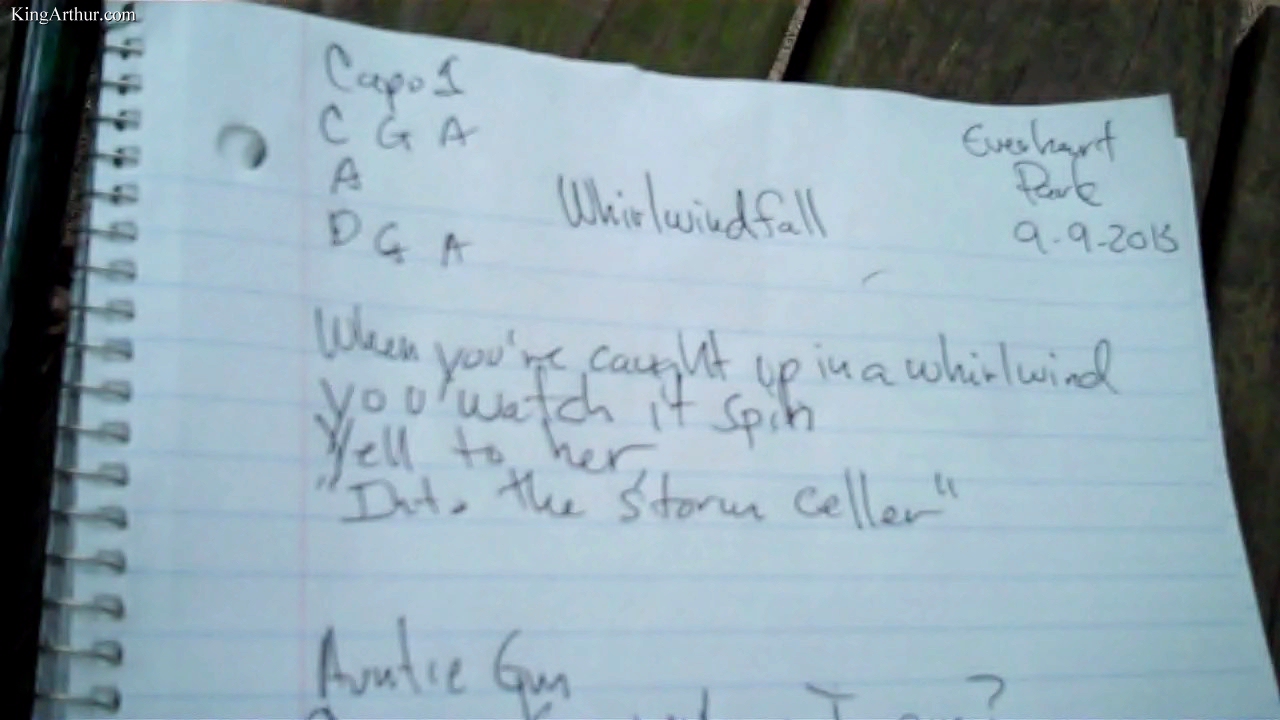 KingArthur.com
Capo 1
C G A
A
D G A
Whirlwindfall
Everhart
Park
9-9-2015
When you're caught up in a whirlwind
you watch it spin
Yell to her,
"Into the storm celler"
Auntie Gun